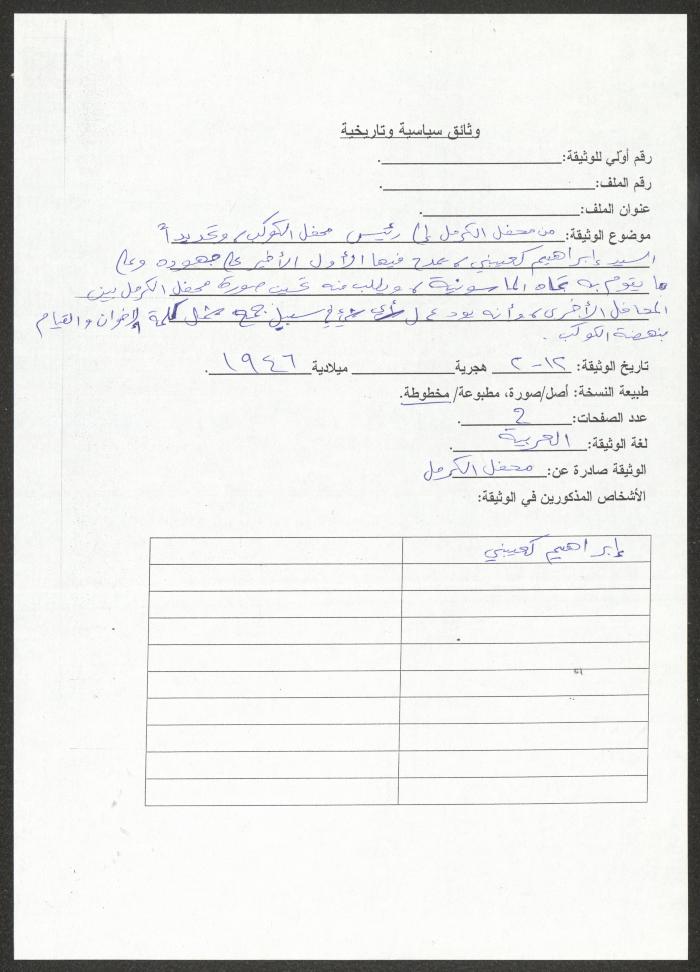 وثائق سياسية وتاريخية
رقم أولي للوثيقة:
رقم الملف:
عنوان الملف:
موضوع الوثيقة: من محفل الكرمل إلى رئيس محفل الكوكب، وتحديداً
السيد إبراهيم كعيبني، يمدح فيها الأول الأخير على جهوده وعلى
ما يقوم به تجاه الماسونية، ويطلب منه تحسين صورة محفل الكرمل بين
المحافل الأخرى، وأنه يود عمل أي شيء في سبيل جمع شمل كلمة الإخوان والقيام
بنهضة الكوكب.
تاريخ الوثيقة: ١٢-٢ هجرية ميلادية ١٩٤٦.
طبيعة النسخة: أصل/صورة، مطبوعة/ مخطوطة.
عدد الصفحات: 2.
لغة الوثيقة: العربية.
الوثيقة صادرة عن: محفل الكرمل
الأشخاص المذكورين في الوثيقة:
إبراهيم كعيبني